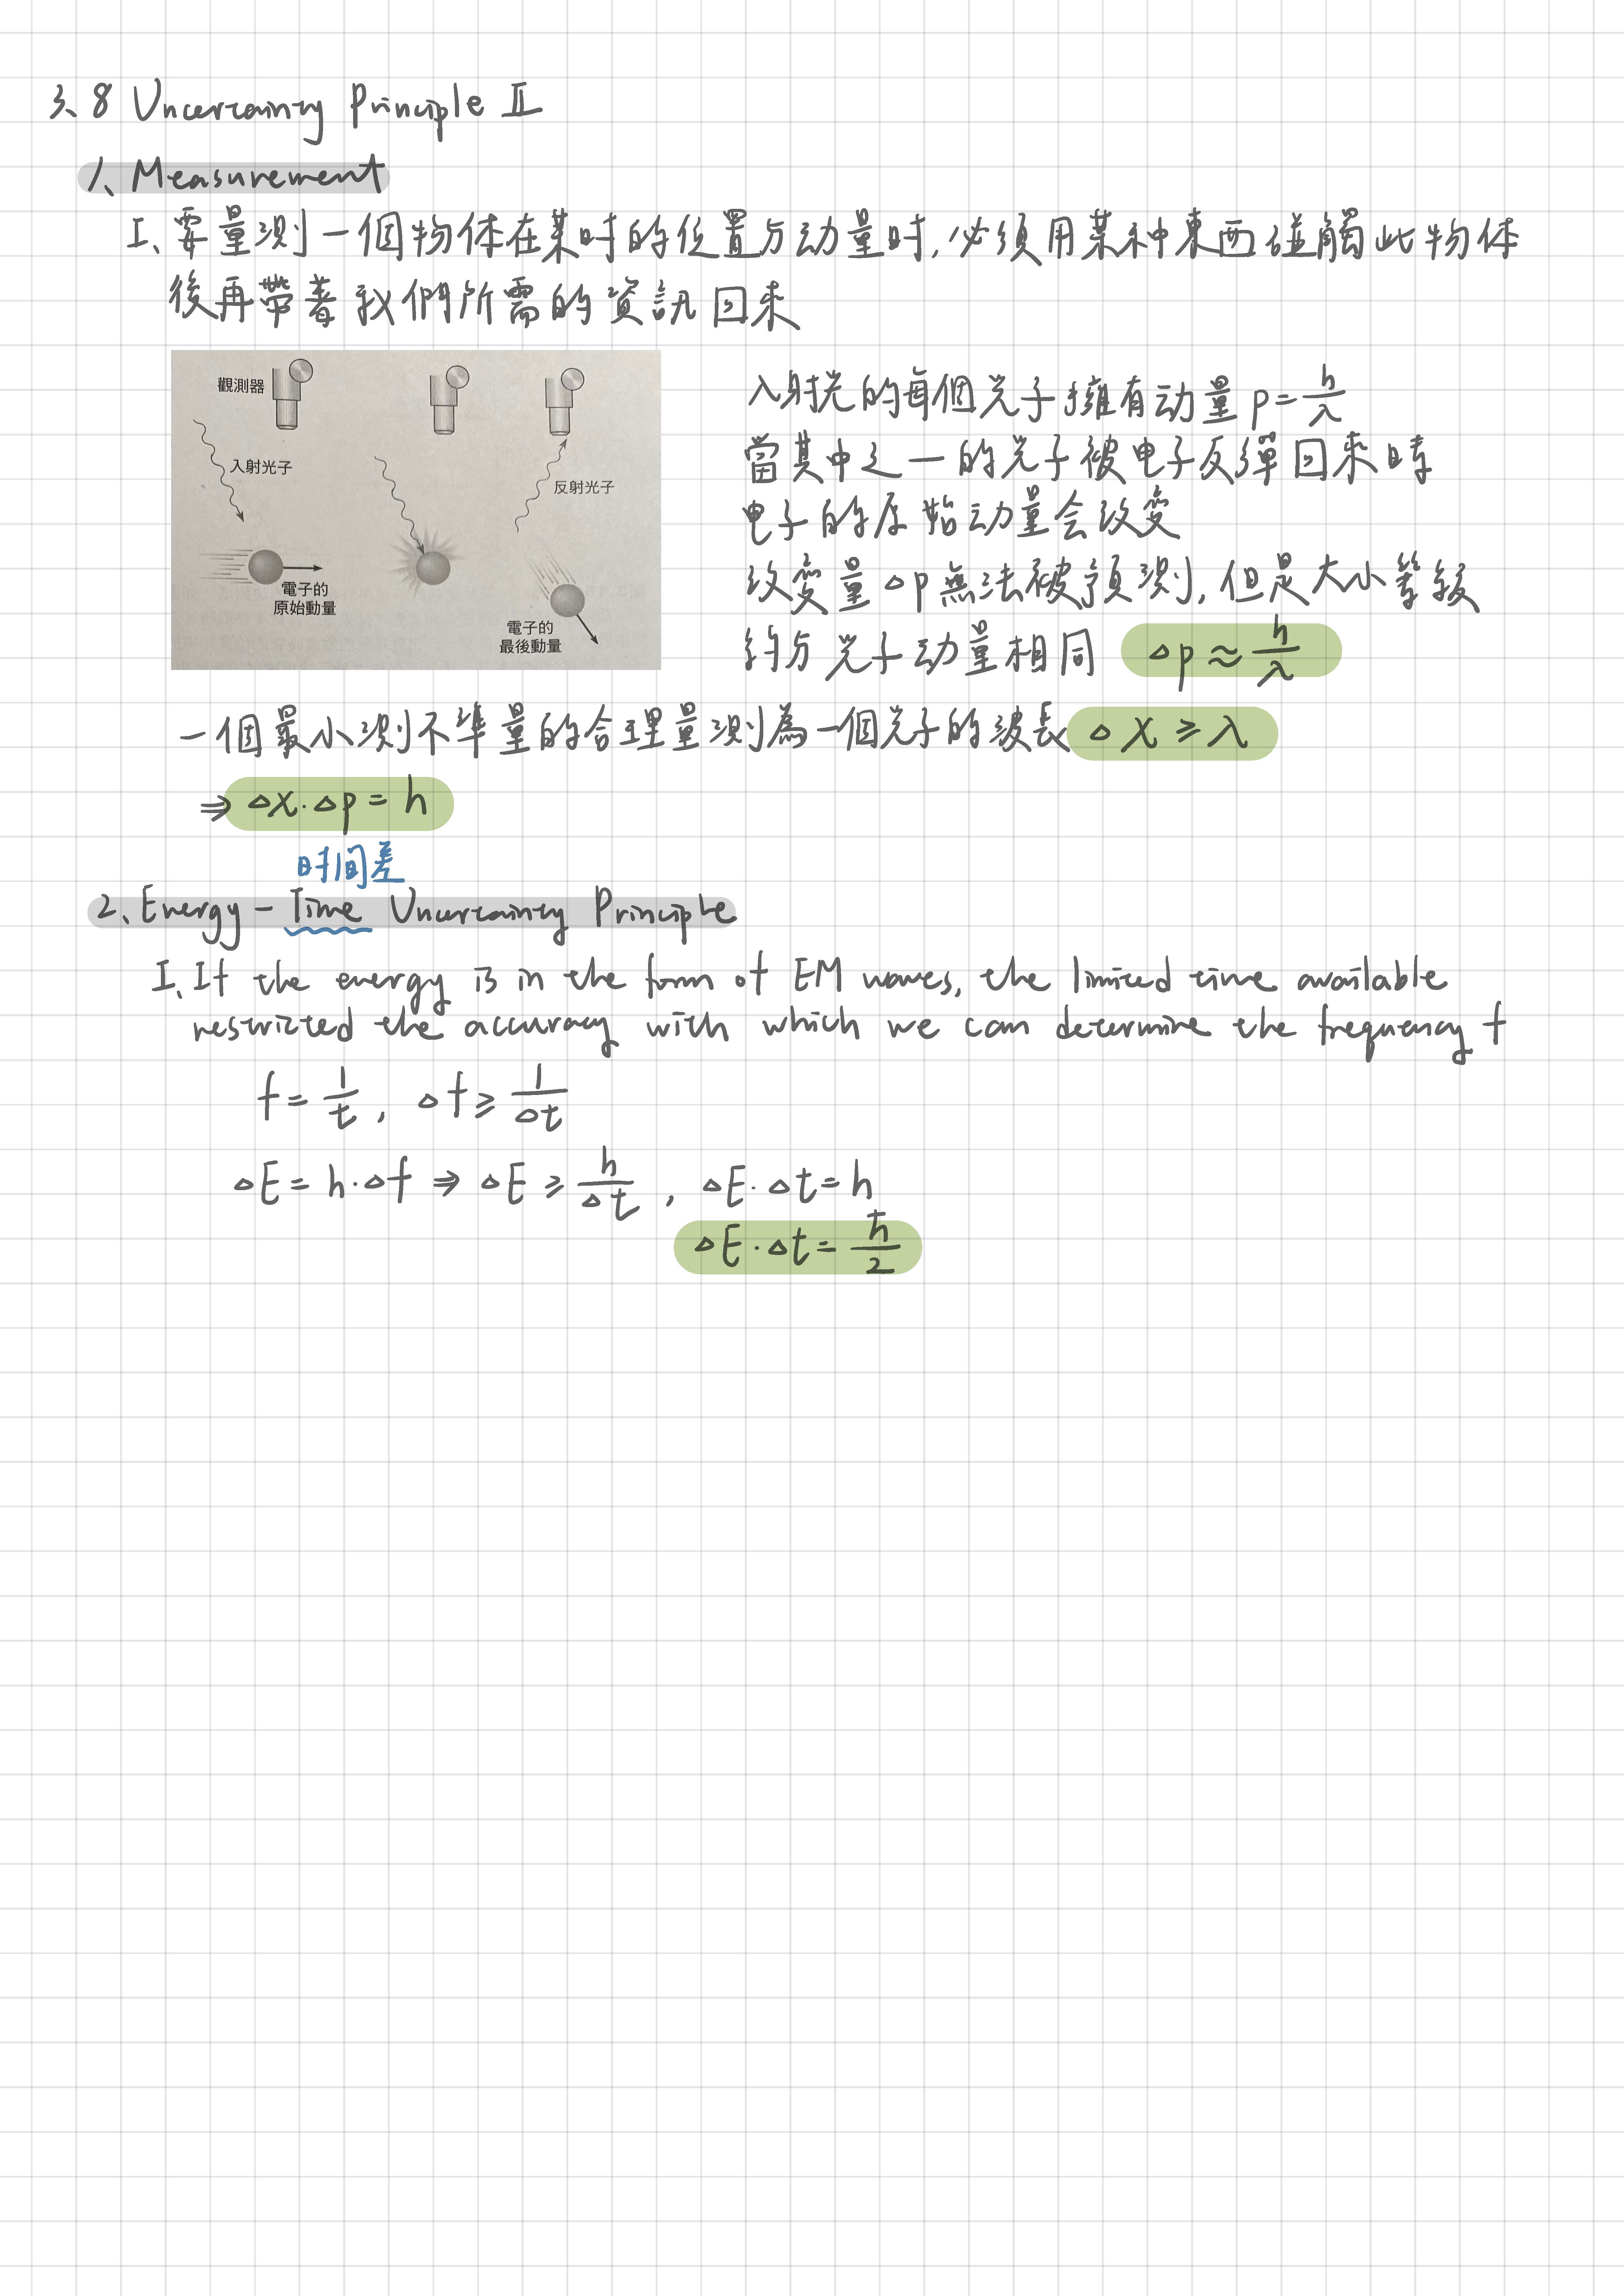 3、8 Uncertainty Principle II
1、Measurement
I、要量測一個物体在某时的位置与动量时,必須用某种東西碰觸此物体
後再帶著我們所需的資訊回來
觀測器
入射光子
反射光子
電子的
原始動量
電子的
最後動量
入射光的每個光子擁有动量 p=h/λ
當其中之一的光子被电子反彈回來時
电子的原始动量会改变
改变量 △p無法被預測,但是大小等級
約与光子动量相同 △p≈h/λ
一個最小測不準量的合理量測為一個光子的波長 △x≥λ
⇒ △x·△p=h
时间差
2、Energy-Time Uncertainty Principle
I、If the energy is in the form of EM waves, the limited time available
restricted the accuracy with which we can determine the frequency f
f=1/t, △f≥1/△t
△E=h·△f ⇒ △E≥h/△t, △E·△t=h
△E·△t=ħ/2